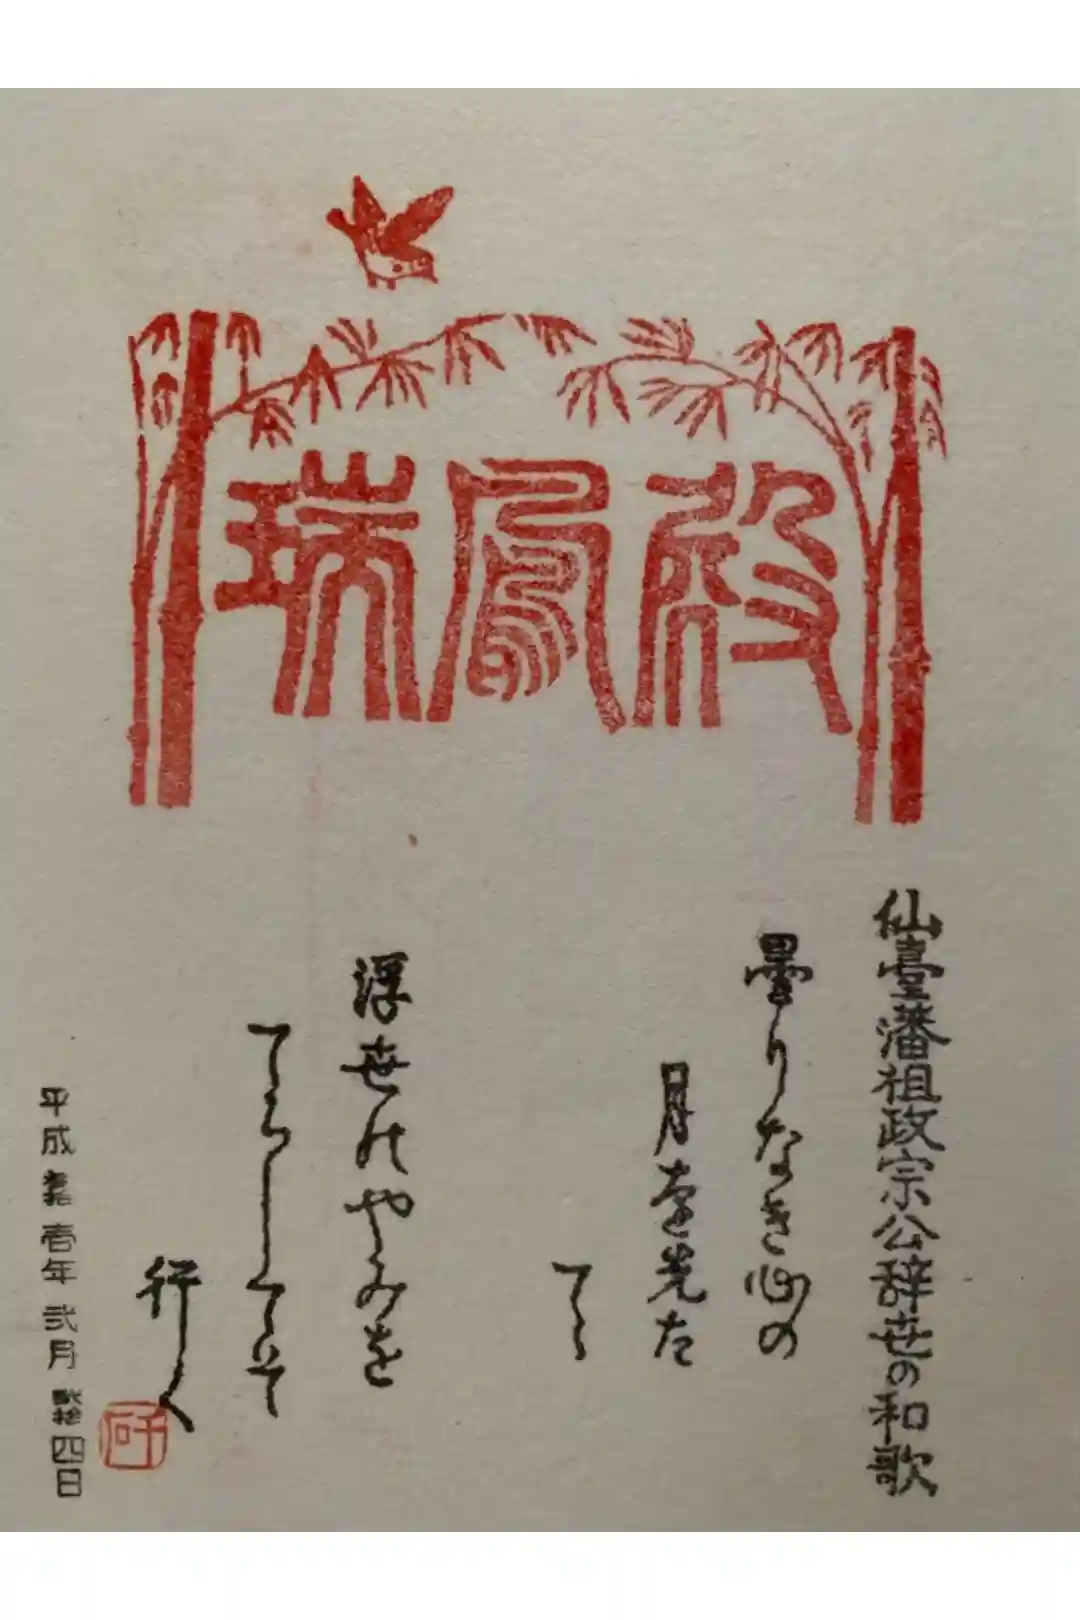 瑞鳳殿
仙臺藩祖政宗公辞世の和歌
曇りなき心の
月を先た
てゝ
浮世のやみを
てらしてこそ
行く
平成壱拾壱年弐月弐拾四日